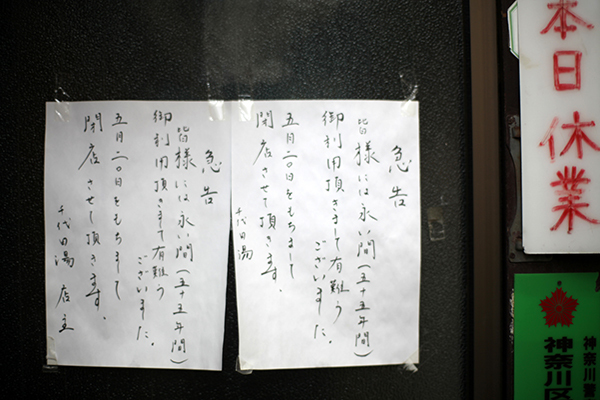 本日休業
急告
皆様には永い間(五十五年間)
御利用頂きまして有難う
ございました
五月二〇日をもちまして
閉店させて頂きます。
千代田湯
急告
皆様には永い間(五十五年間)
御利用頂きまして有難う
ございました。
五月二〇日をもちまして
閉店させて頂きます。
千代田湯 店主
神奈川警
神奈川区